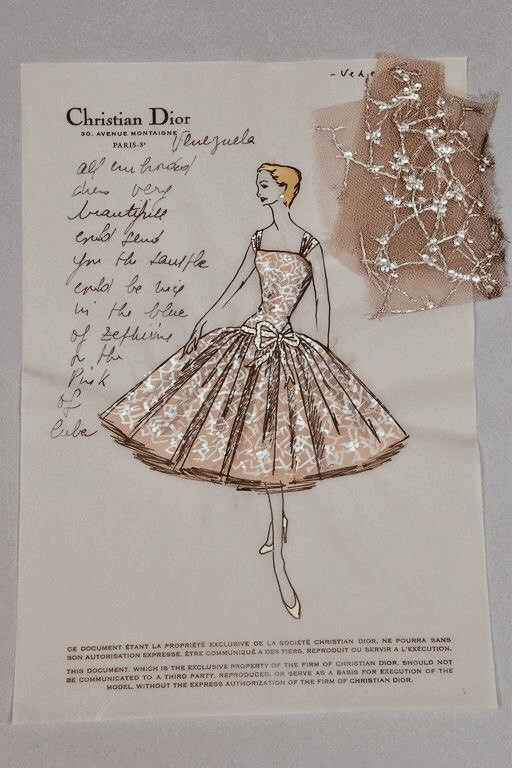 Christian Dior
30, AVENUE MONTAIGNE
PARIS-8e
Venezuela
all embroided
dress very
beautyfull
could send
you the sample
could be nice
in the blue
of Zephirine
or the
Pink
of
Cuba
CE DOCUMENT ÉTANT LA PROPRIÉTÉ EXCLUSIVE DE LA SOCIÉTÉ CHRISTIAN DIOR, NE POURRA SANS
SON AUTORISATION EXPRESSE, ÊTRE COMMUNIQUÉ A DES TIERS, REPRODUIT OU SERVIR A L'EXÉCUTION.
THIS DOCUMENT, WHICH IS THE EXCLUSIVE PROPERTY OF THE FIRM OF CHRISTIAN DIOR, SHOULD NOT
BE COMMUNICATED TO A THIRD PARTY, REPRODUCED, OR SERVE AS A BASIS FOR EXECUTION OF THE
MODEL, WITHOUT THE EXPRESS AUTHORIZATION OF THE FIRM OF CHRISTIAN DIOR.